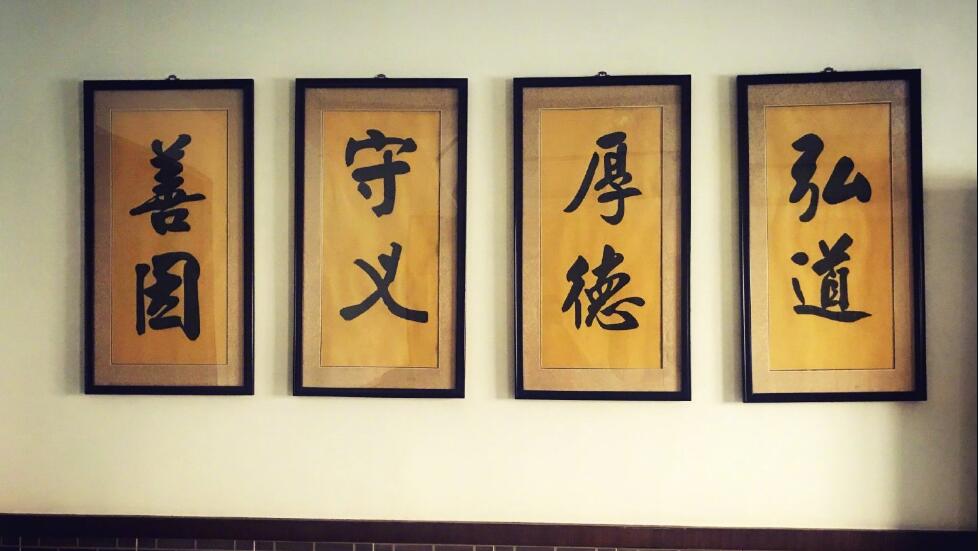 弘道
厚德
守义
善因